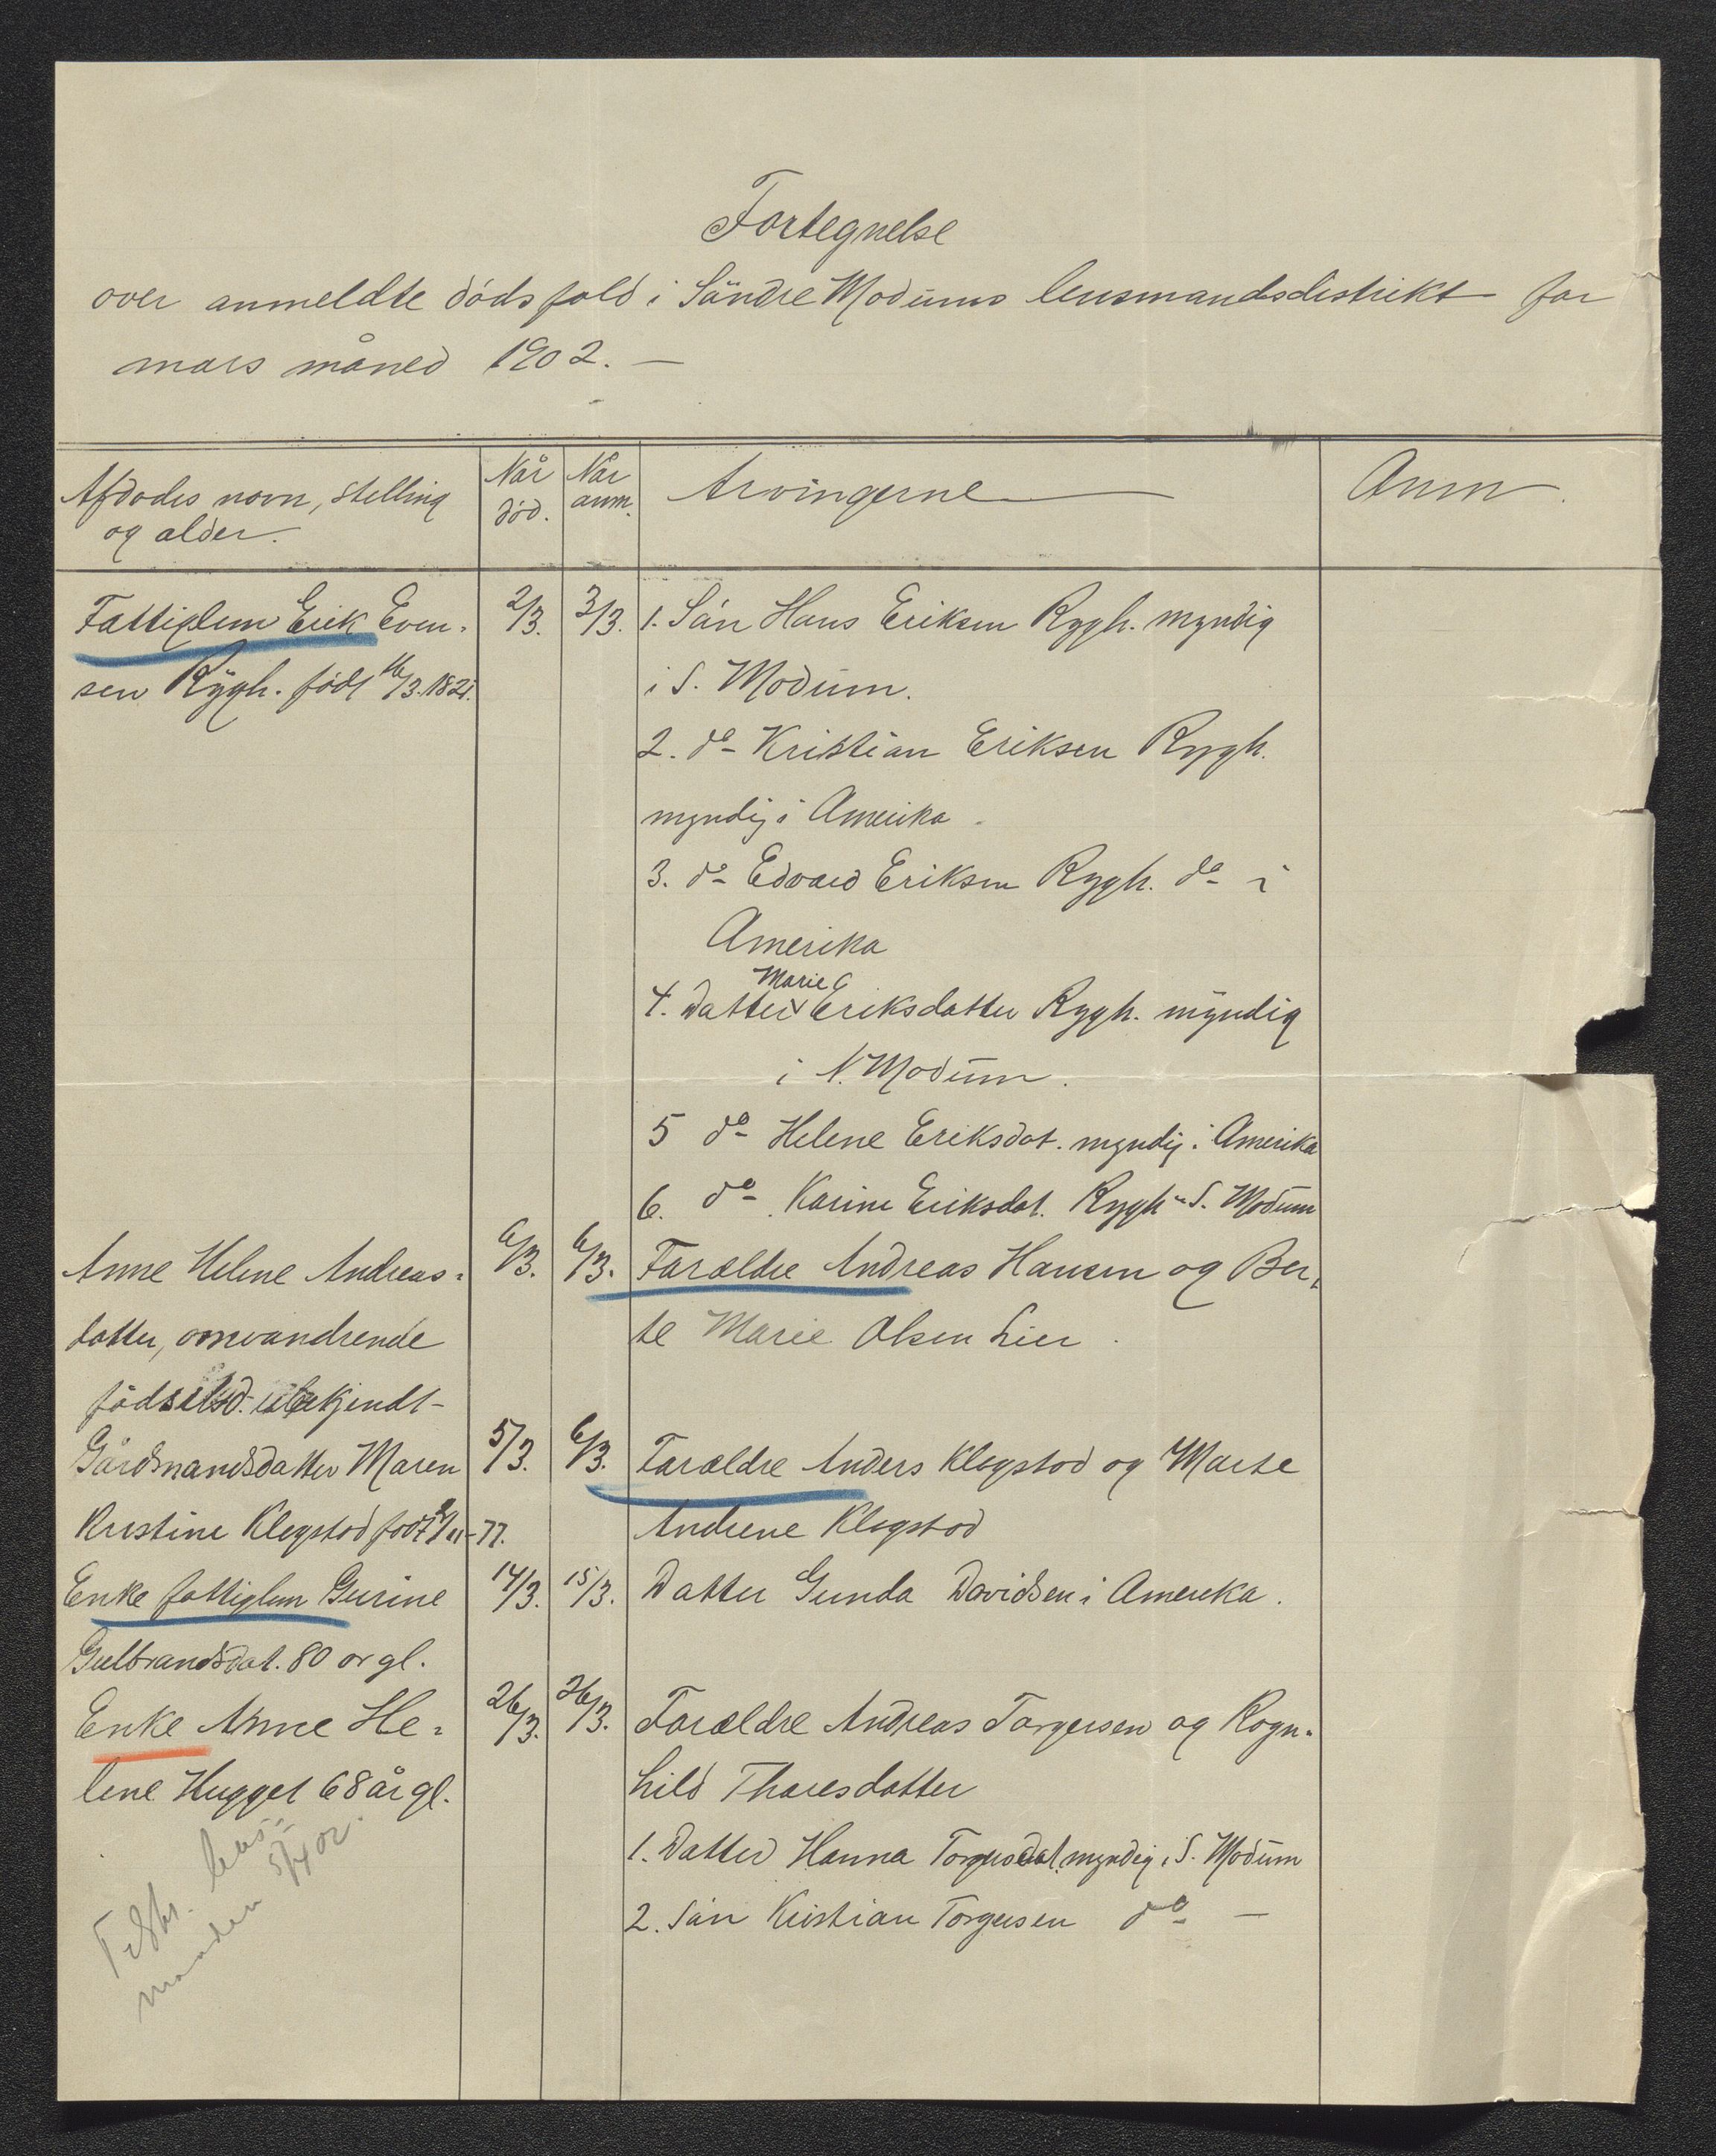 Fortegnelse
over anmeldte dödsfald i Söndre Modums lensmandsdistrikt for
mars måned 1902. —
Afdödes navn, stilling
og alder.
Når
död.
Når
anm.
Arvingerne
Anm.
Fattiglem Erik Even-
sen Rygh. född 16/3. 1821.
2/3.
3/3.
1. Sön Hans Eriksen Rygh. myndig
i S. Modum.
2. do Kristian Eriksen Rygh.
myndig i Amerika
3. do Edvard Eriksen Rygh. do i
Amerika
Marie
4. Datter x Eriksdatter Rygh. myndig
i N. Modum.
5 do Helene Eriksdat. myndig i Amerika
6. do Karine Eriksdat. Rygh " S. Modum
Anne Helene Andreas-
datter, omvandrende
födselsd. ubekjendt-
6/3.
6/3.
Forældre Andreas Hansen og Ber-
te Marie Olsen Lier.
Gårdmandsdatter Maren
Kristine Klegstod född /11-77.
5/3.
6/3.
Forældre Anders Klegstod og Marte
Andrene Klegstod
Enke fattiglem Gurine
Gulbrandsdat. 80 år gl.
14/3.
15/3.
Datter Gunda Davidsen i Amerika.
Enke Anne He-
lene Hugget 68 år gl.
26/3.
26/3.
Forældre Andreas Torgersen og Rogn-
hild Thoresdatter
1. Datter Hanna Torgersdat. myndig i S. Modum
2. Sön Kristian Torgersen do —
Tilskr. lens-
manden 5/4 02.